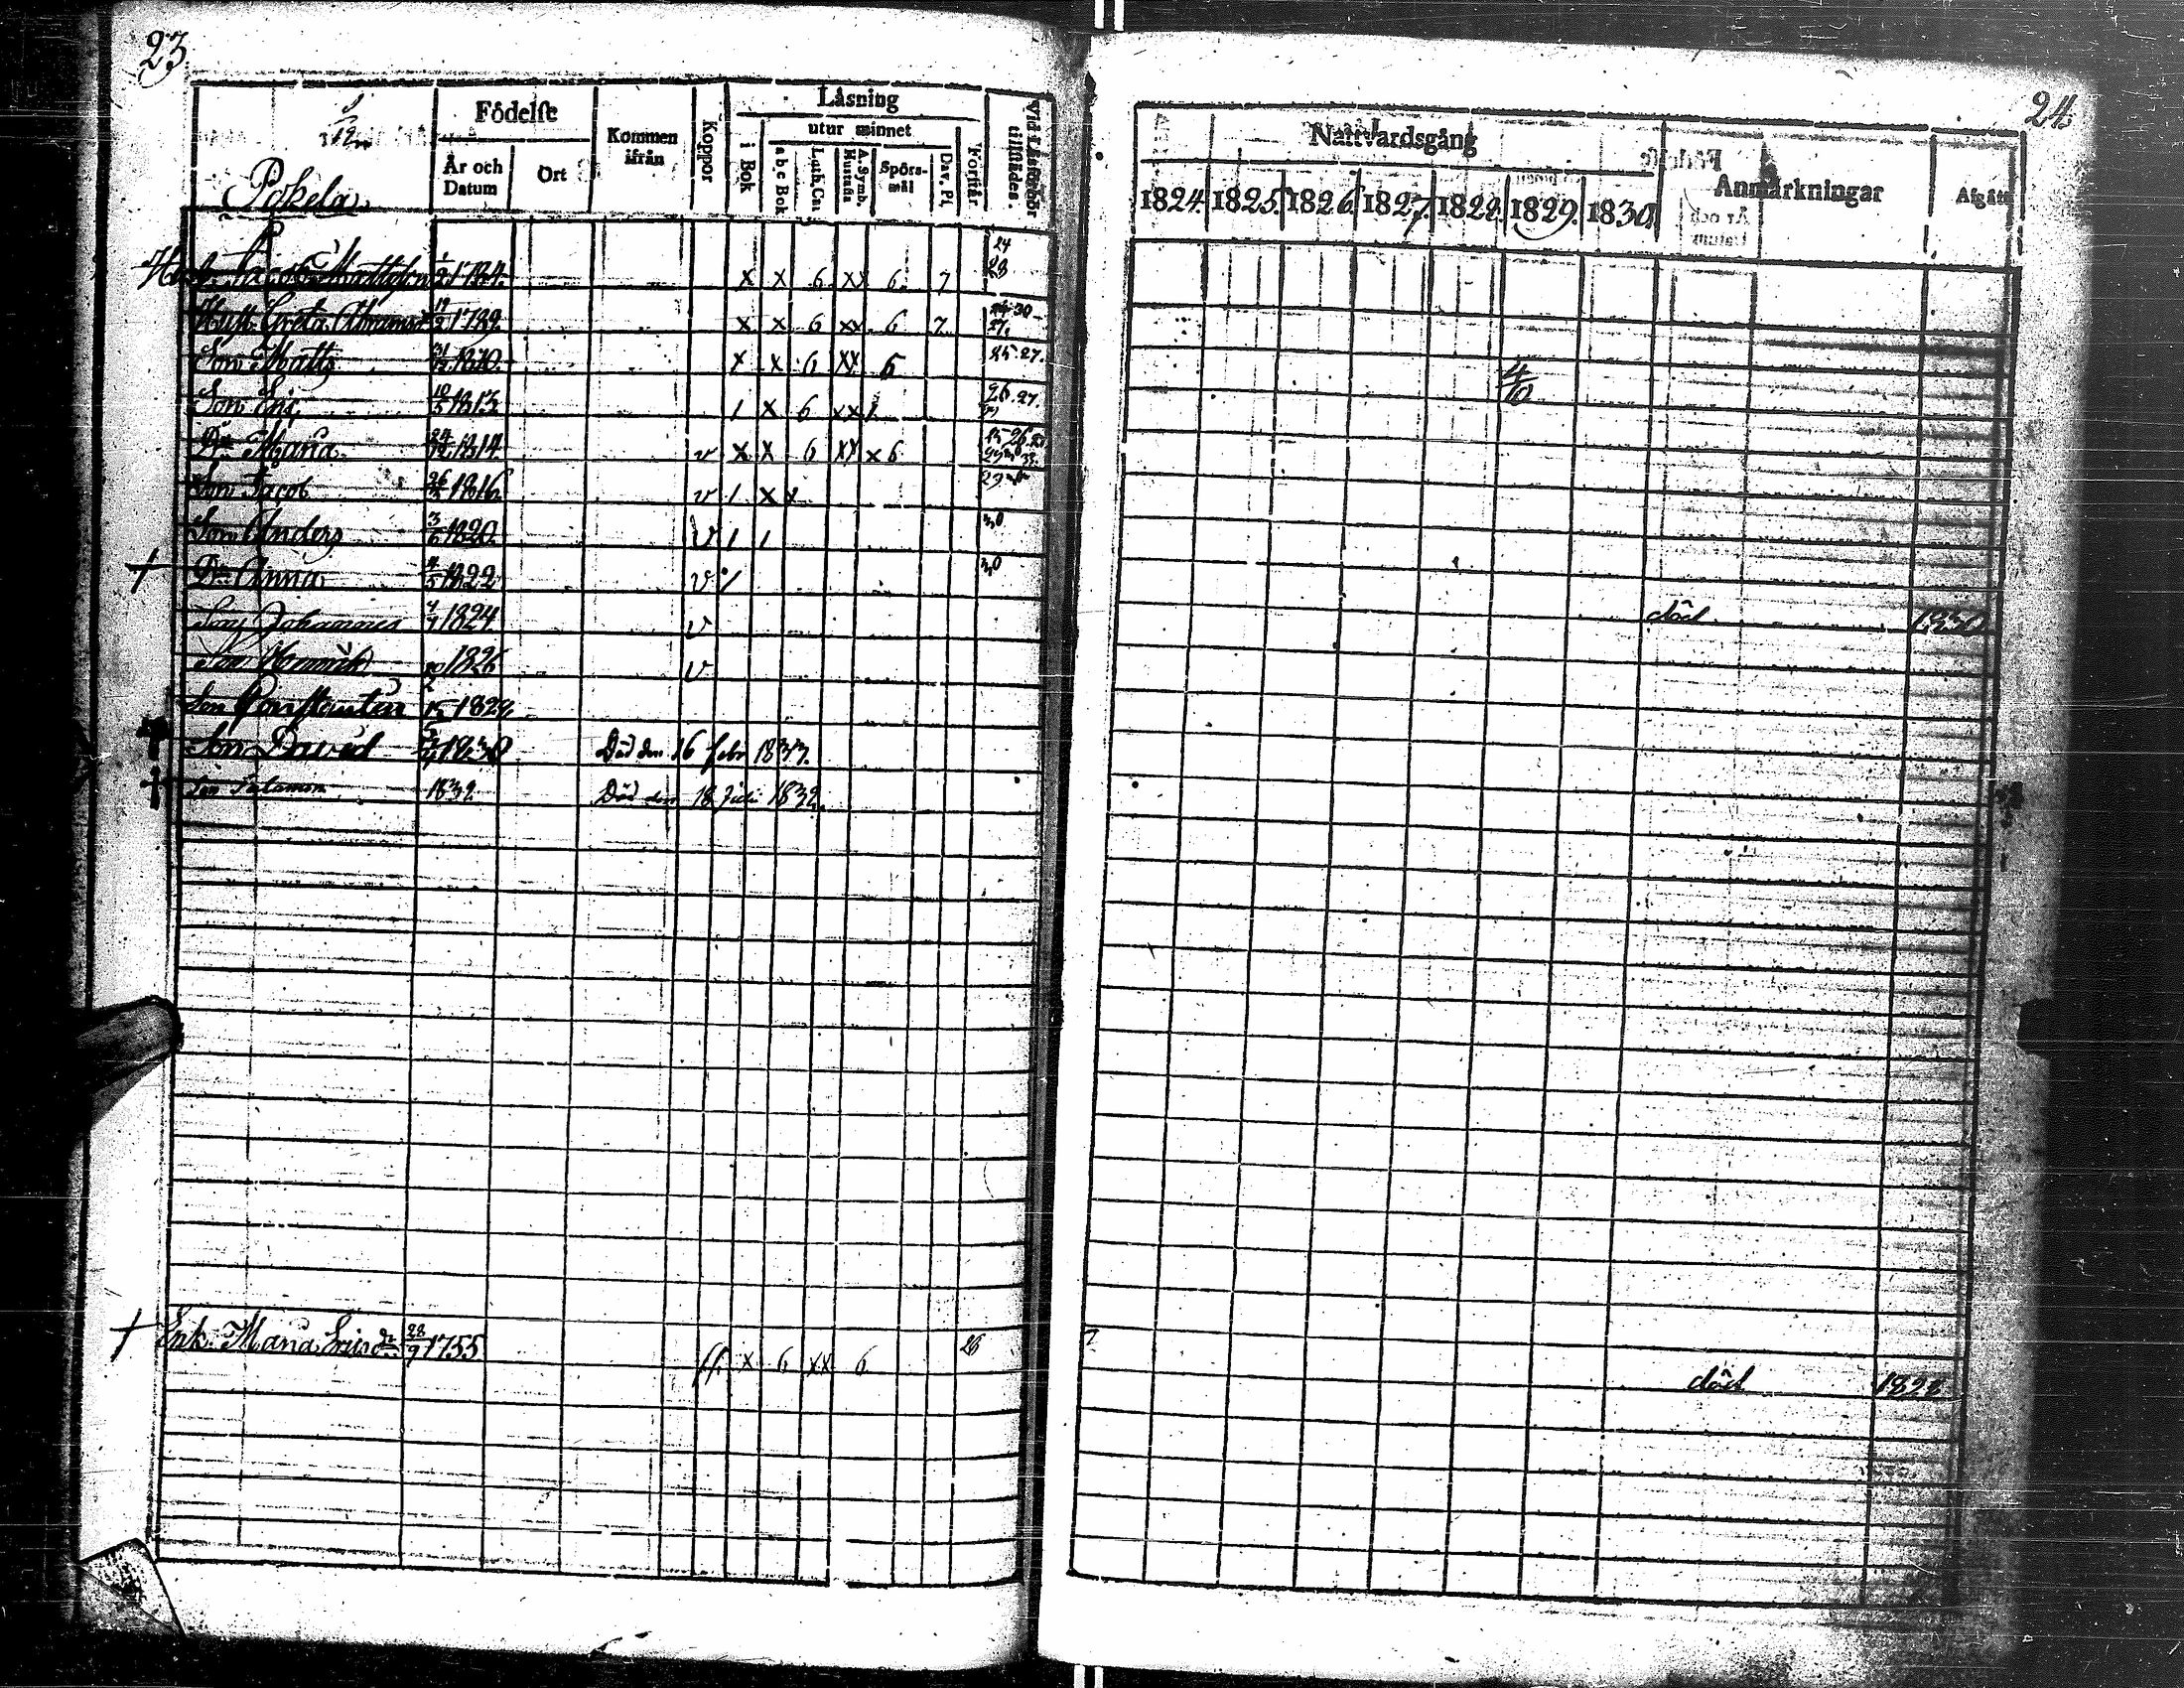 23
Pokela
Födelse
År och Datum
Ort
Kommen ifrån
Koppor
Läsning
i Bok
utur minnet
a b c Bok
Luth. Cat.
A. Symb. Hustafla
Spörs-mål
Dav. Ps.
Förstår
Vid Läsförhör tillstädes.
Jacob Mattsson 1784 x x 6 xx 6 7 24 28
Hust. Greta Abramsd 19/2 1789 x x 6 xx 6 7 30 27.
Son Matts 1810 x x 6 xx 6 25.27.
Son Eric 10/5 1813 1 x 6 xx 1 26.27.
Dr Maria 24/12 1814 v x x 6 xx x 6
Son Jacob 26/ 1816 v 1 x x 29
Son Anders 3/6 1820 v 1 1 30
+ Dr Anna 4/5 1822 v 1 30
Son Johannes 4/7 1824 v
Son Henrik 20/2 1826 v
Son Constantin 15/ 1828
† Son David 1830 Död den 16 febr 1833.
† Son Salomon 1832 Död den 18 Julii 1832.
+ Enk. Maria Ericsdr 28/9 1755 x 6 xx 6 26
24.
Nattvardsgång
1824. 1825. 1826. 1827. 1828. 1829. 1830.
Anmärkningar
Afgått
4/10
död 1830
7
död 1828